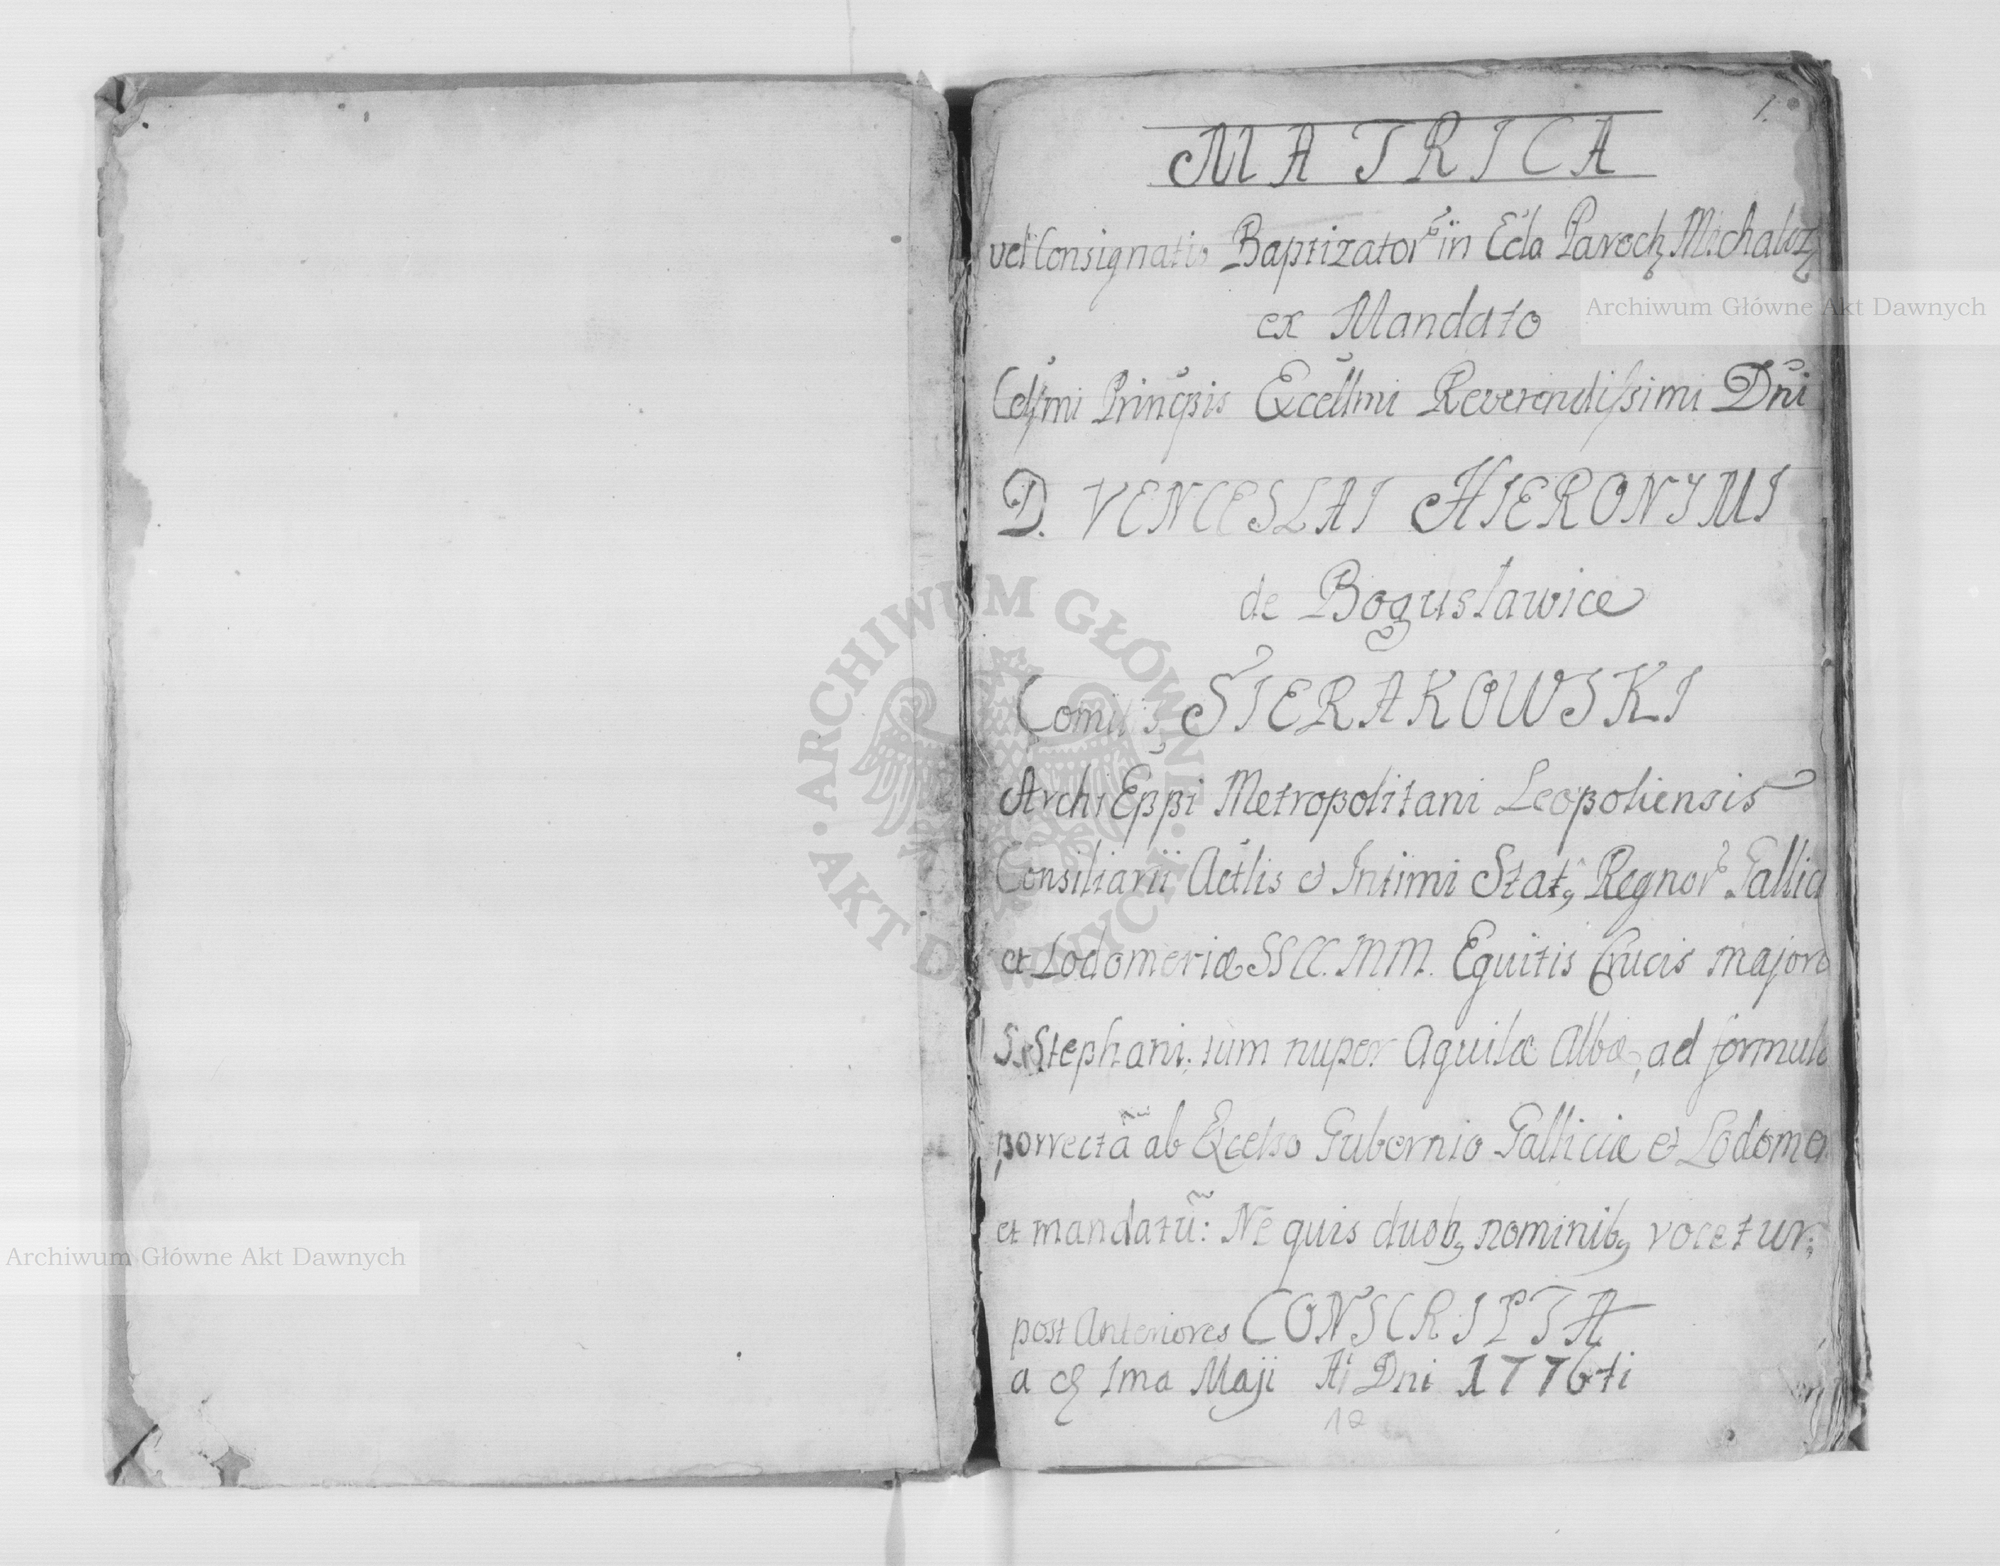 1.
MATRICA
vel Consignatio Baptizator in Ecla Paroch Michalcz
ex Mandato
Celsmi Principis Excellmi Reverendissimi Dni
D. VENCESLAI HIERONYMI
de Bogusławice
Comitis SIERAKOWSKI
ArchiEppi Metropolitani Leopoliensis
Consiliarii Actlis et Intimi Stat, Regnor Gallicia
et Lodomeriæ SSCC. MM. Equitis Crucis majoris
S. Stephani, tum nuper Aquilæ Albæ, ad formulã
porrectã ab Excelso Gubernio Galliciæ et Lodomer
et mandatũ: Ne quis duob, nominib, vocetur;
post Anteriores CONSCRIPTA
a 1ma Maji Ai Dni 1776ti
Archiwum Główne Akt Dawnych
Archiwum Główne Akt Dawnych
ARCHIWUM GŁÓWNE AKT DAWNYCH